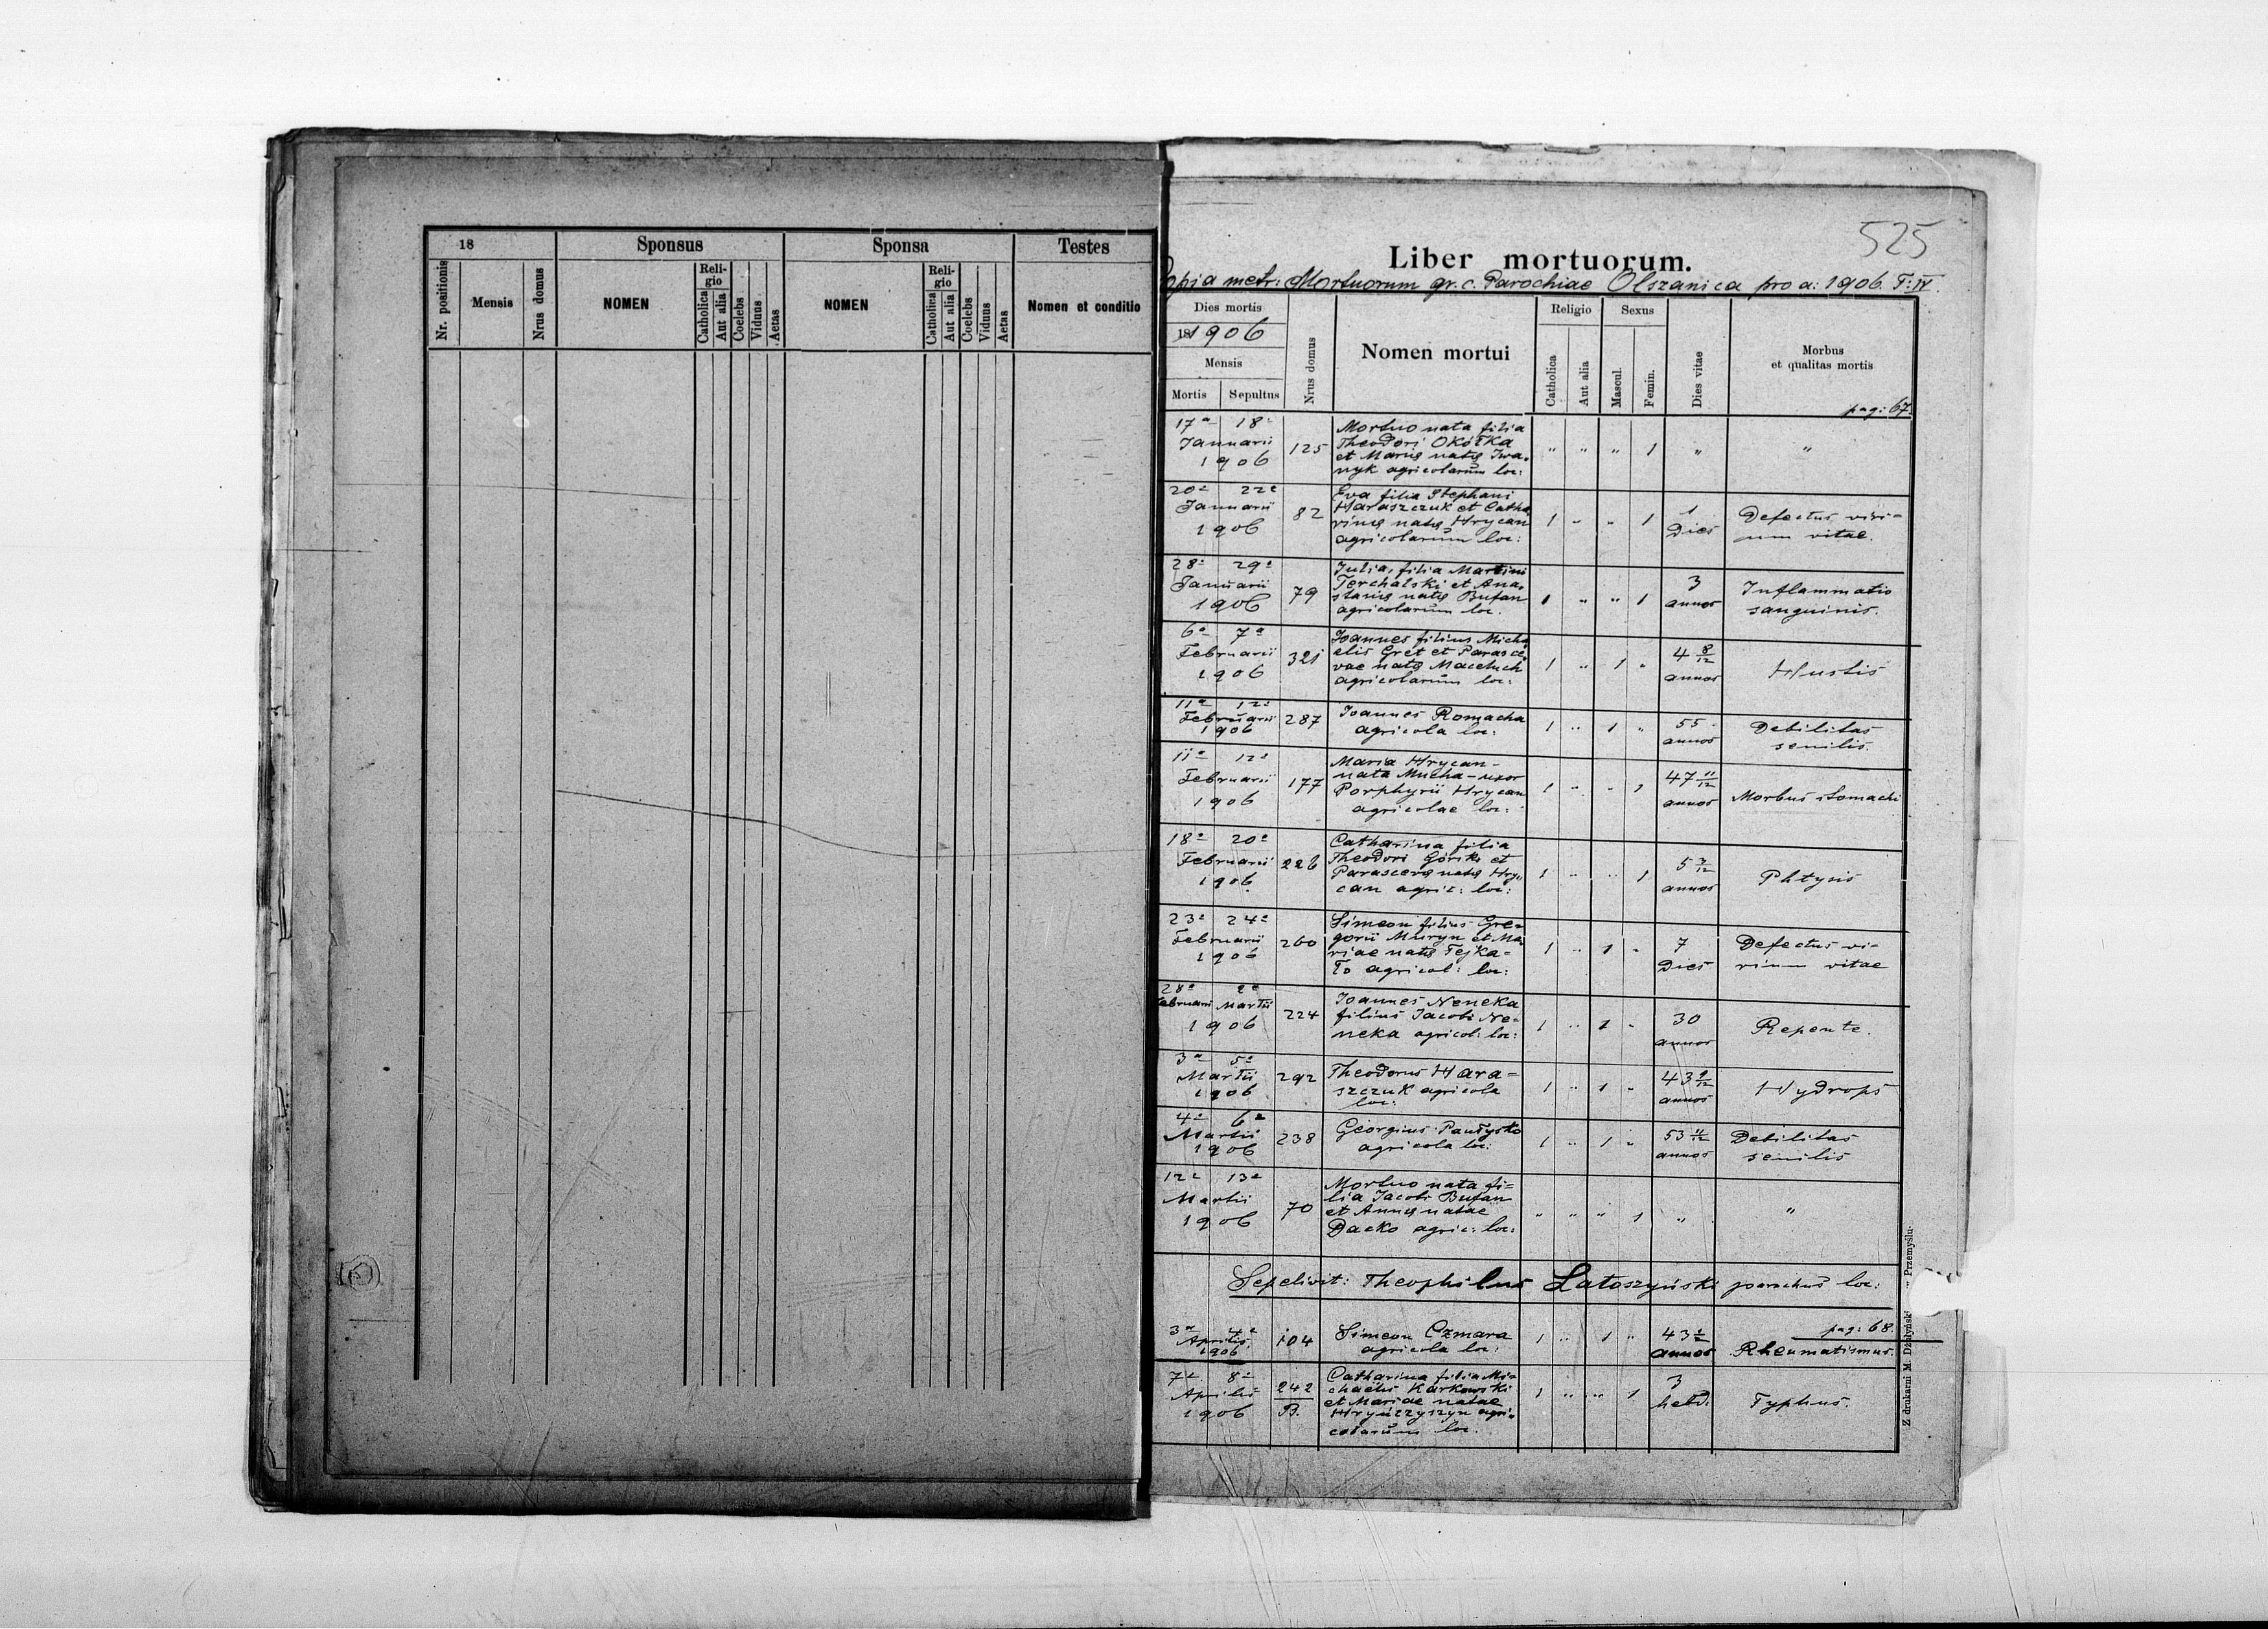 18
Sponsus
Sponsa
Testes
Nr. positionis
Mensis
Nrus domus
NOMEN
Reli-
gio
Catholica
Aut alia
Coelebs
Viduus
Aetas
NOMEN
Reli-
gio
Catholica
Aut alia
Coelebs
Viduus
Aetas
Nomen et conditio
525
Liber mortuorum.
Copia metr: Mortuorum gr. c. Parochiae Olszanica pro a: 1906. T: IV.
Dies mortis
181906
Mensis
Mortis Sepultus
Nrus domus
Nomen mortui
Religio
Catholica
Aut alia
Sexus
Mascul.
Femin.
Dies vitae
Morbus
et qualitas mortis
pag: 67.
17a 18a
Januarii
1906
125
Mortuo nata filia
Theodori Okółka
et Mariæ natæ Iwa-
nyk agricolarum loc:
" " " 1 " "
20a 22a
Januarii
1906
82
Eva filia Stephani
Haraszczuk et Catha-
rinæ natæ Hrycan
agricolarum loc:
1 " " 1
1
Dies
Defectus viri-
um vitae.
28a 29a
Januarii
1906
79
Julia, filia Martini
Terchalski et Ana-
stasiæ natæ Bufan
agricolarum loc.
1 " " 1
3
annos
Inflammatio
sanguinis.
6a 7a
Februarii
1906
321
Joannes filius Micha
elis Gret et Parasce
vae natæ Macełuch
agricolarum loc:
1 " 1 "
4 8/12
annos
Hustis
11a 12a
Februarii
1906
287
Joannes Romacha
agricola loc:
1 " 1 "
55
annos
Debilitas
senilis.
11a 12a
Februarii
1906
177
Maria Hrycan-
nata Mucha-uxor
Porphyrii Hrycan
agricolae loc:
1 " " 1
47 11/12
annos
Morbus stomachi
18a 20a
Februarii
1906
226
Catharina filia
Theodori Górski et
Parascevæ natæ Hry-
can agric: loc:
1 " " 1
5 3/12
annos
Phtysis
23a 24a
Februarii
1906
260
Simeon filius Gre-
gorii Muryn et Ma-
riae natæ Fejka-
ło agricol: loc:
1 " 1 "
7
Dies
Defectus vi-
rium vitae
28a 2a
Februarii Martii
1906
224
Joannes Neneka
filius Jacobi Ne-
neka agricol: loc:
1 " 1 "
30
annos
Repente.
3a 5a
Martii
1906
292
Theodorus Hara-
szczuk agricola
loc:
1 " 1 "
43 9/12
annos
Hydrops
4a 6a
Martii
1906
238
Georgius Pandysko
agricola loc:
1 " 1 "
53 11/12
annos
Debilitas
senilis
12a 13a
Martii
1906
70
Mortuo nata fi-
lia Jacobi Bufan
et Annæ natae
Dacko agric: loc:
" " " 1 " "
Sepelivit: Theophilus Łatoszyński parochus loc:
pag: 68.
3a 4a
Aprilis
1906
104
Simeon Czmara
agricola loc:
1 " 1 "
43 1/2
annos
Rheumatismus.
7a 8a
Aprilis
1906
242
B.
Catharina filia Mi-
chaelis Karkowski
et Mariae natae
Hryńczyszyn agri-
colarum loc.
1 " " 1
3
hebd.
Typhus.
Z drukarni M. Przemyślu